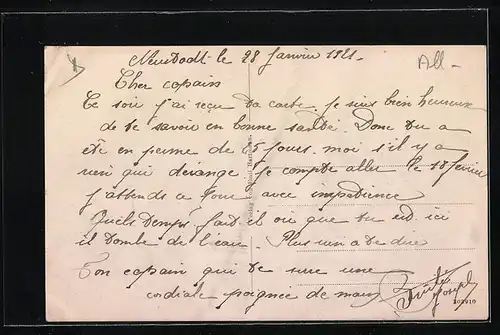 Neustadt le 28 Janvier 1921.
All -
Cher copain
Ce soir j'ai reçu ta carte. je suis bien heureux
de te savoir en bonne santé. Donc tu a
ete en perme de 25 jours. moi s'il y a
rien qui derange. je compte aller le 18 fevrier
j'attends ce jour avec impatience
Quels temps fait il où que tu est. ici
il tombe de l'eau. Plus rien a te dire
Ton copain qui te sure une
cordiale poignée de main
Joseph
102910